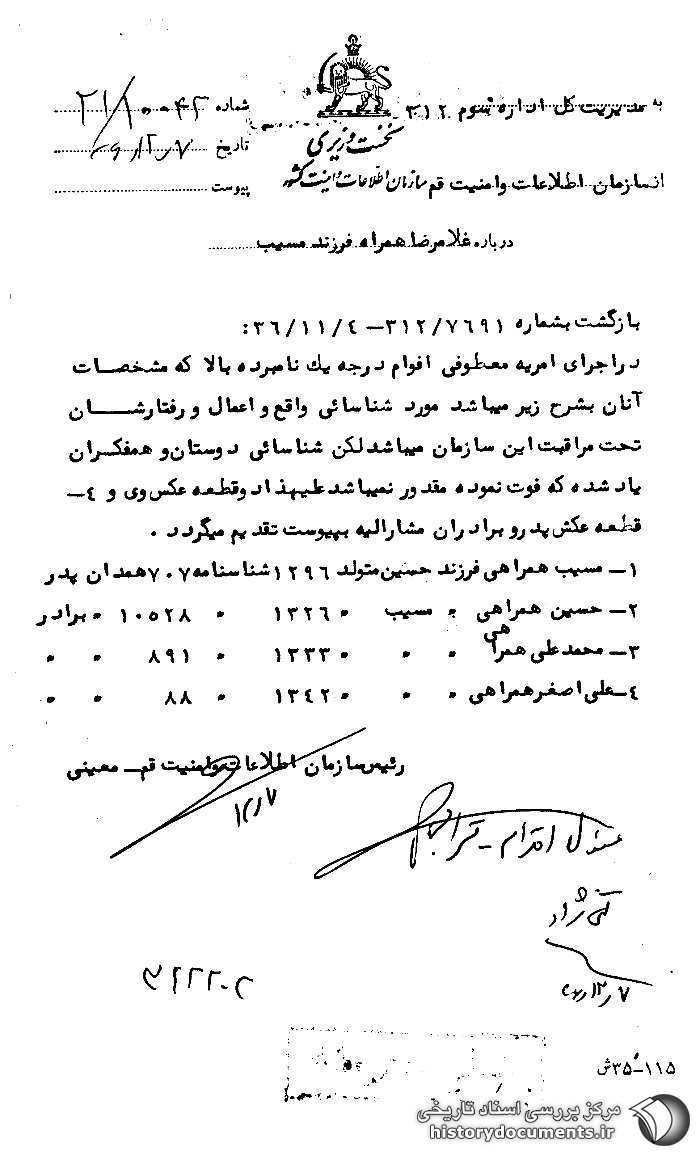 به مدیریت کل اداره سوم ۳۱۲
شماره ۲۱/۱۰۰۴۲
نخست وزیری
تاریخ
از سازمان اطلاعات و امنیت قم سازمان اطلاعات و امنیت کشور
پیوست
درباره غلامرضا همراه فرزند مسیب
بازگشت بشماره ۳۱۲/۷۶۹۱ – ۳۶/۱۱/۴:
در اجرای امریه معطوفی اقوام درجه یك نامبرده بالا که مشخصات
آنان بشرح زیر میباشد مورد شناسائی واقع و اعمال و رفتارشان
تحت مراقبت این سازمان میباشد لکن شناسائی دوستان و همفکران
یاد شده که فوت نموده مقدور نمیباشد علیهذا دو قطعه عکس وی و ۴ –
قطعه عکس پدر و برادران مشارالیه بپیوست تقدیم میگردد .
۱ – مسیب همراهی فرزند حسین متولد ۱۲۹۶ شناسنامه ۷۰۷ همدان پدر
۲ – حسین همراهی " مسیب " ۱۳۲۶ " ۱۰۵۲۸ " برادر
۳ – محمد علی همراهی " " " ۱۳۳۳ " ۸۹۱ " "
۴ – علی اصغر همراهی " " " ۱۳۴۲ " ۸۸ " "
رئیس سازمان اطلاعات و امنیت قم – معینی
۱۲/۷
مسئول اقدام –
۷/۱۲/
۳۶۲۲۰۲
۱۱۵–۳۵ش
مرکز بررسی اسناد تاریخی
historydocuments.ir